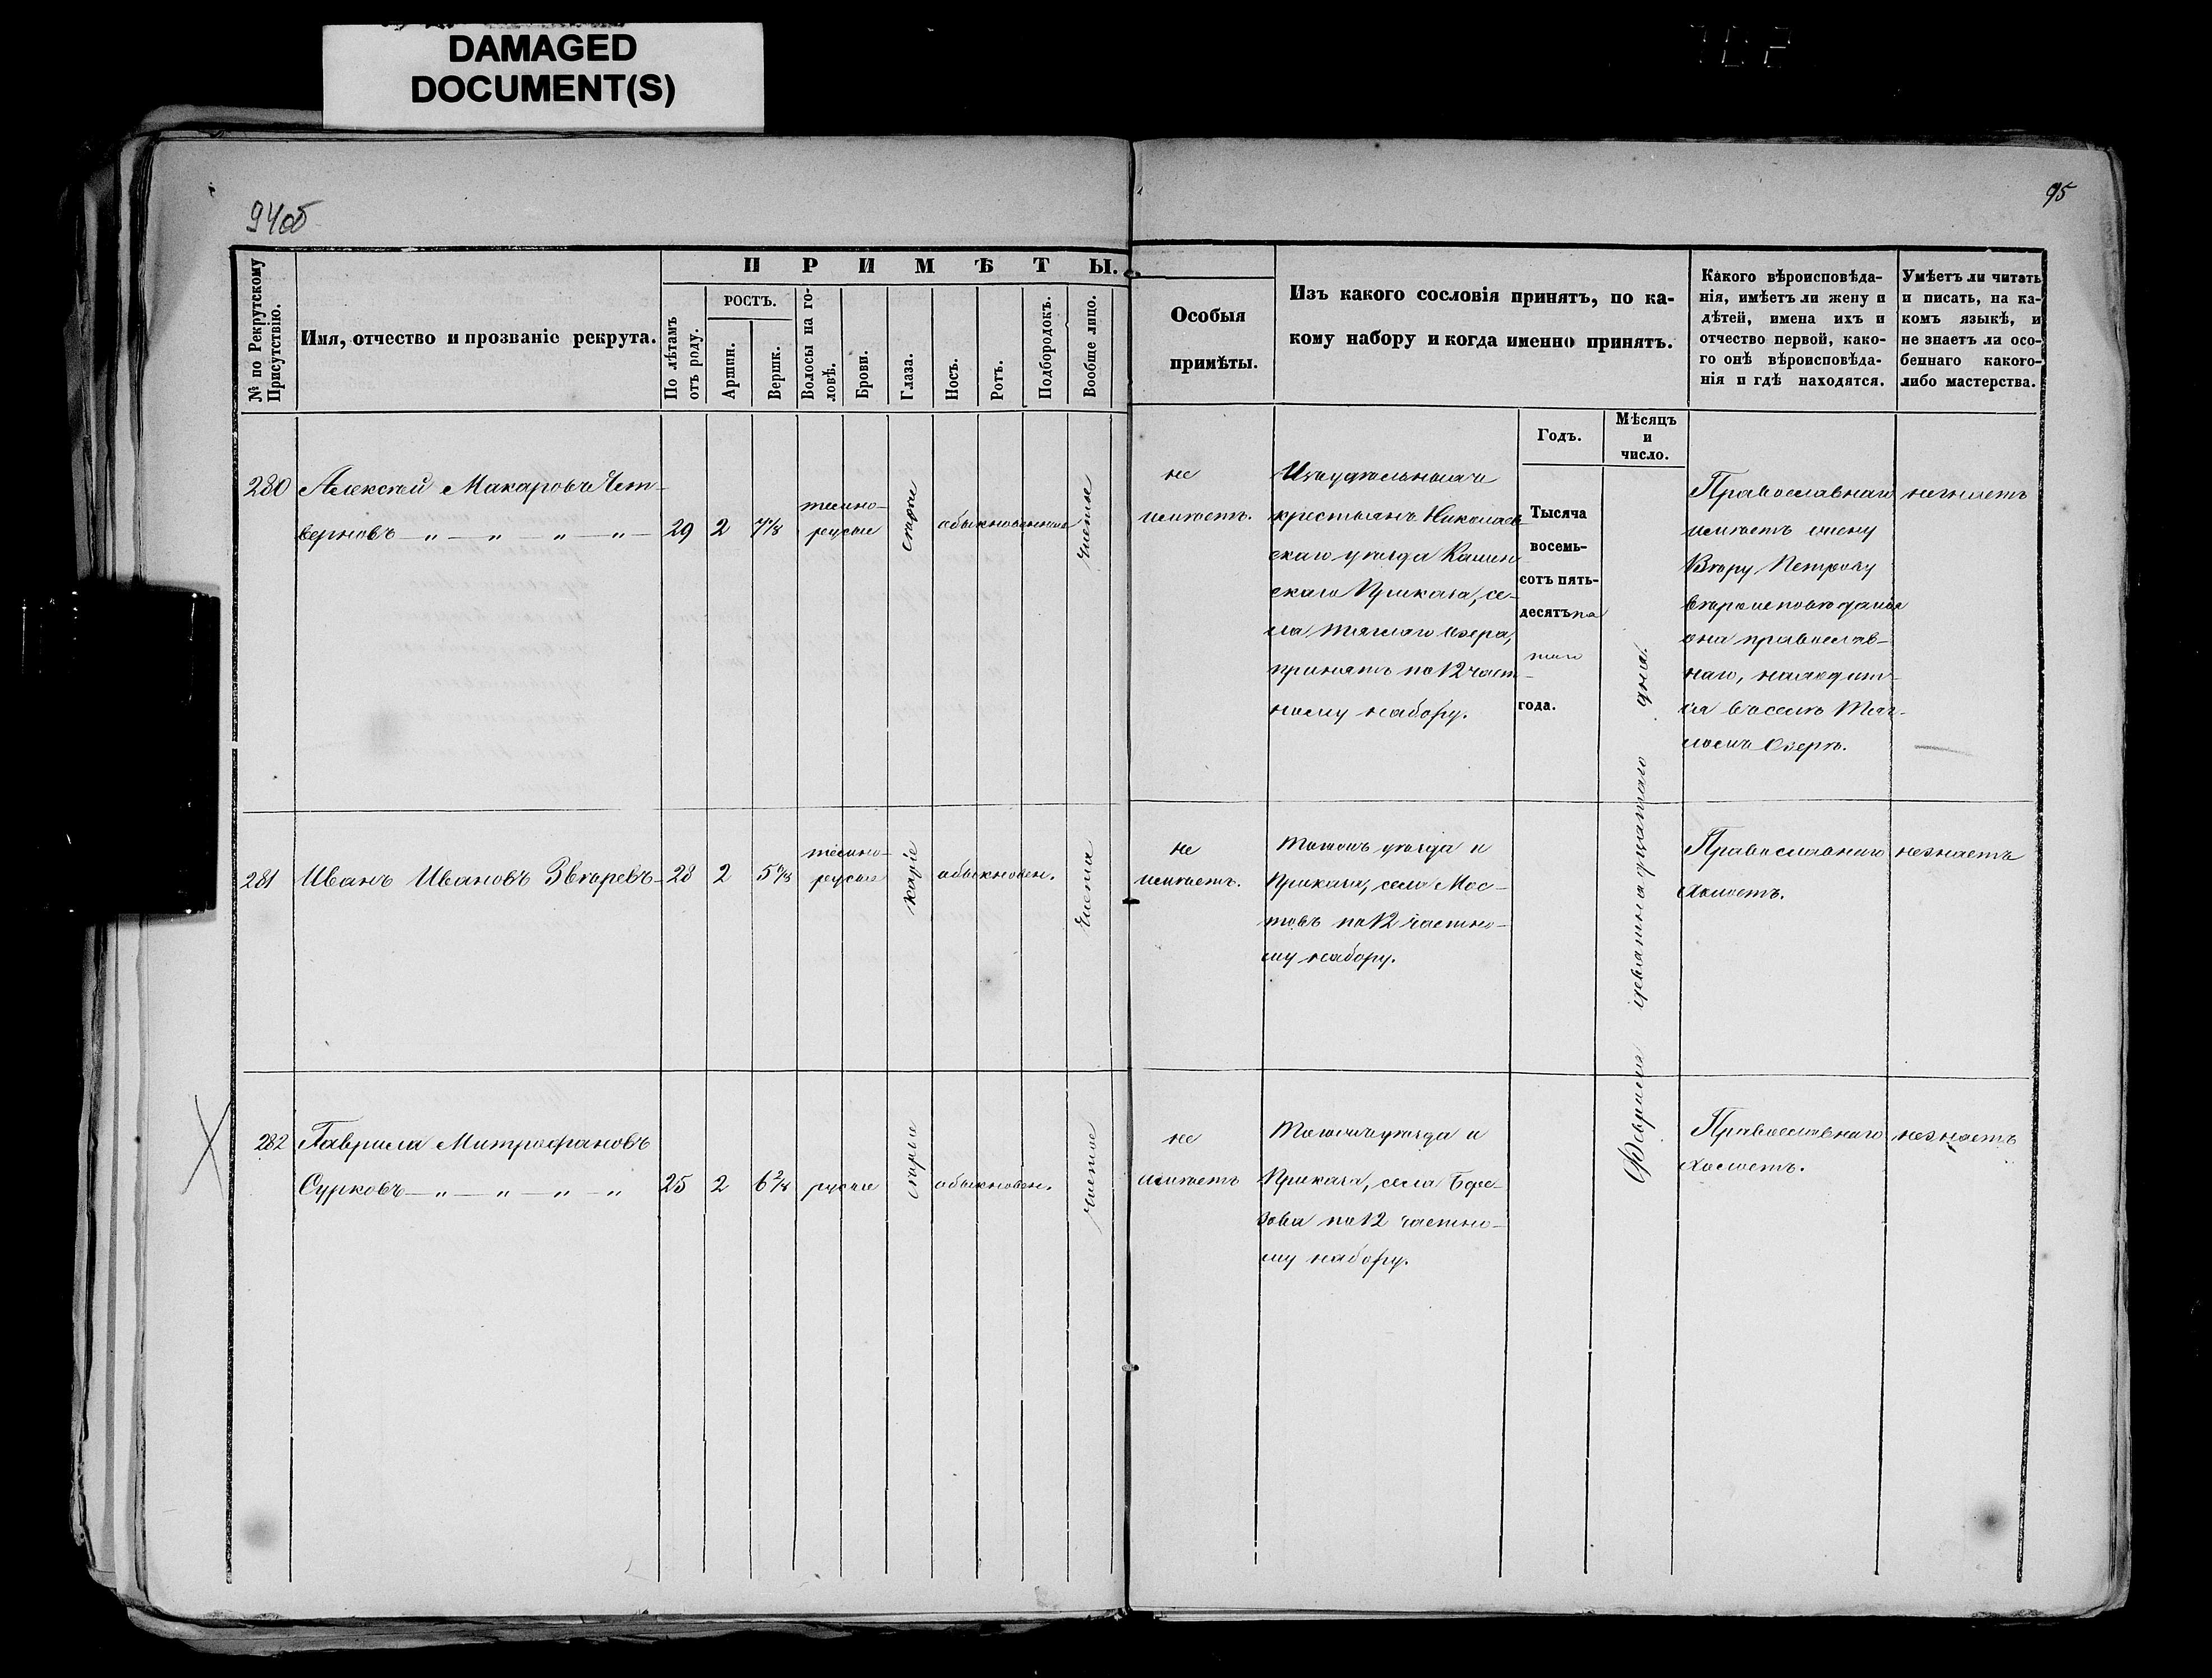 DAMAGED
DOCUMENT(S)
94об
95
№ по Рекрутскому
Присутствію.
Имя, отчество и прозваніе рекрута.
ПРИМѢТЫ.
По лѣтамъ
отъ роду.
РОСТЪ.
Аршин.
Вершк.
Волосы на го-
ловѣ.
Брови.
Глаза.
Носъ.
Ротъ.
Подбородокъ.
Вообще лицо.
Особыя
примѣты.
Изъ какого сословія принятъ, по ка-
кому набору и когда именно принятъ.
Какого вѣроисповѣда-
нія, имѣетъ ли жену и
дѣтей, имена ихъ и
отчество первой, како-
го онѣ вѣроисповѣда-
нія и гдѣ находятся.
Умѣетъ ли читать
и писать, на ка-
комъ языкѣ, и
не знаетъ ли осо-
беннаго какого-
либо мастерства.
Годъ.
Мѣсяцъ
и
число.
280
Алексѣй Макаровъ Чет-
верновъ — „ — „ — „ — „ —
29
2
7 1/8
темно-
русые
сѣрые
обыкновенные
чистое
не
имѣетъ.
Изъ удѣльныхъ
крестьянъ Николаев-
скаго уѣзда Камен-
скаго Приказа, се-
ла Тяглаго Озера,
принятъ по 12 част-
ному набору.
Тысяча
восемь-
сотъ пять-
десятъ пя
таго
года.
Февраля девятнадцатаго дня.
Православнаго
имѣетъ жену
Вѣру Петрову
вѣроисповѣданія
она православ-
наго, находит-
ся въ селѣ Тяг-
ломъ Озерѣ.
незнаетъ
281
Иванъ Ивановъ Звѣревъ —
28
2
5 6/8
темно-
русые
каріе
обыкновен.
чистое
не
имѣетъ.
Тогожъ уѣзда и
Приказа, села Мос-
товъ по 12 частно-
му набору.
Православнаго
Холостъ.
незнаетъ
282
Гаврила Митрофановъ
Сурковъ — „ — „ — „ — „
25
2
6 2/8
русые
сѣрые
обыкновен.
чистое
не
имѣетъ
Тогожъ уѣзда и
Приказа, села Бере-
зова по 12 частно-
му набору.
Православнаго
Холостъ.
незнаетъ